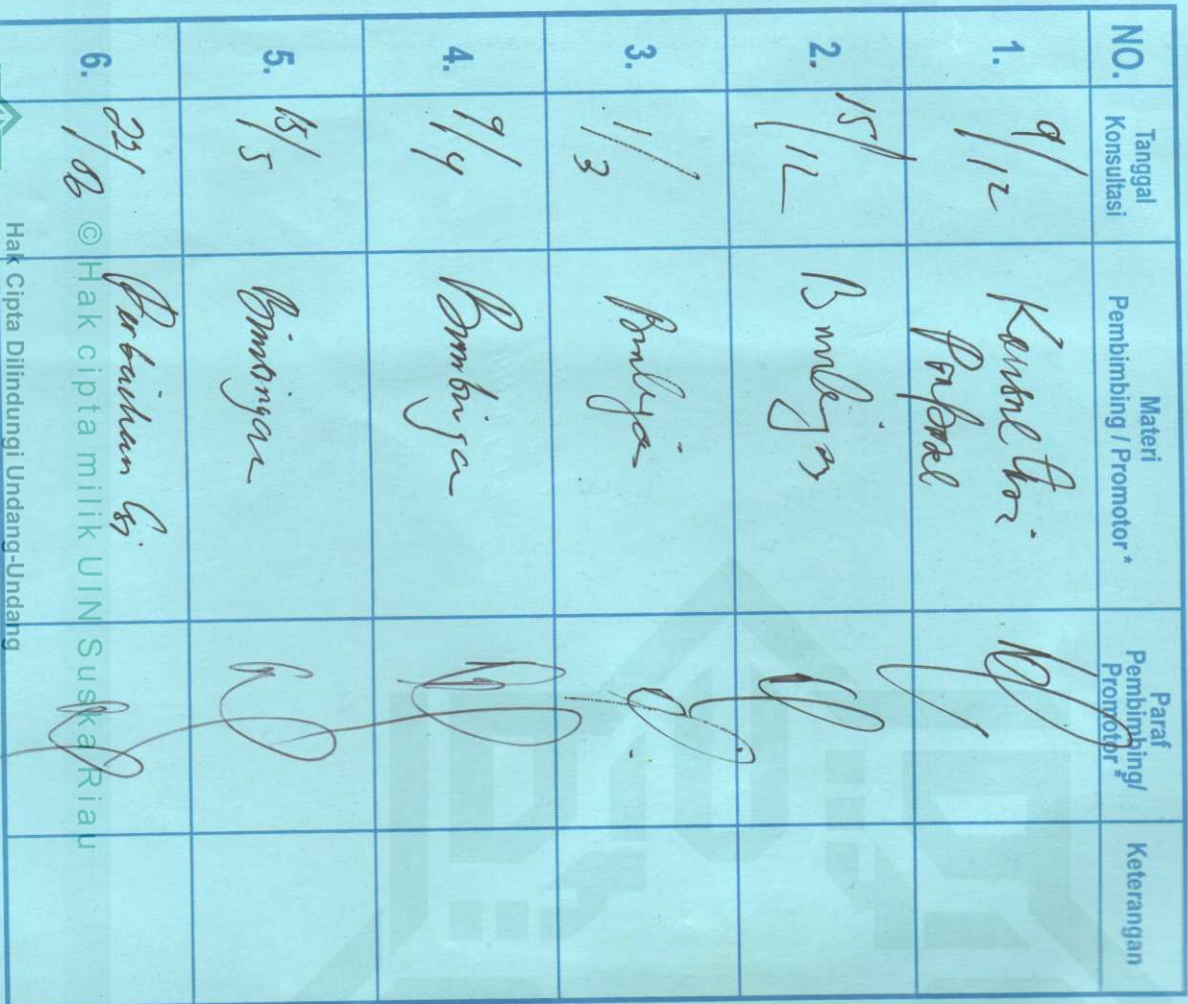 NO.
Tanggal
Konsultasi
Materi
Pembimbing / Promotor *
Paraf
Pembimbing/
Promotor *
Keterangan
1.
9/12
Konsultasi
Proposal
2.
15/12
Bimbingan
3.
1/3
Bimbingan
4.
9/4
Bimbingan
5.
15/5
Bimbingan
6.
Perbaikan isi
© Hak cipta milik UIN Suska Riau
Hak Cipta Dilindungi Undang-Undang